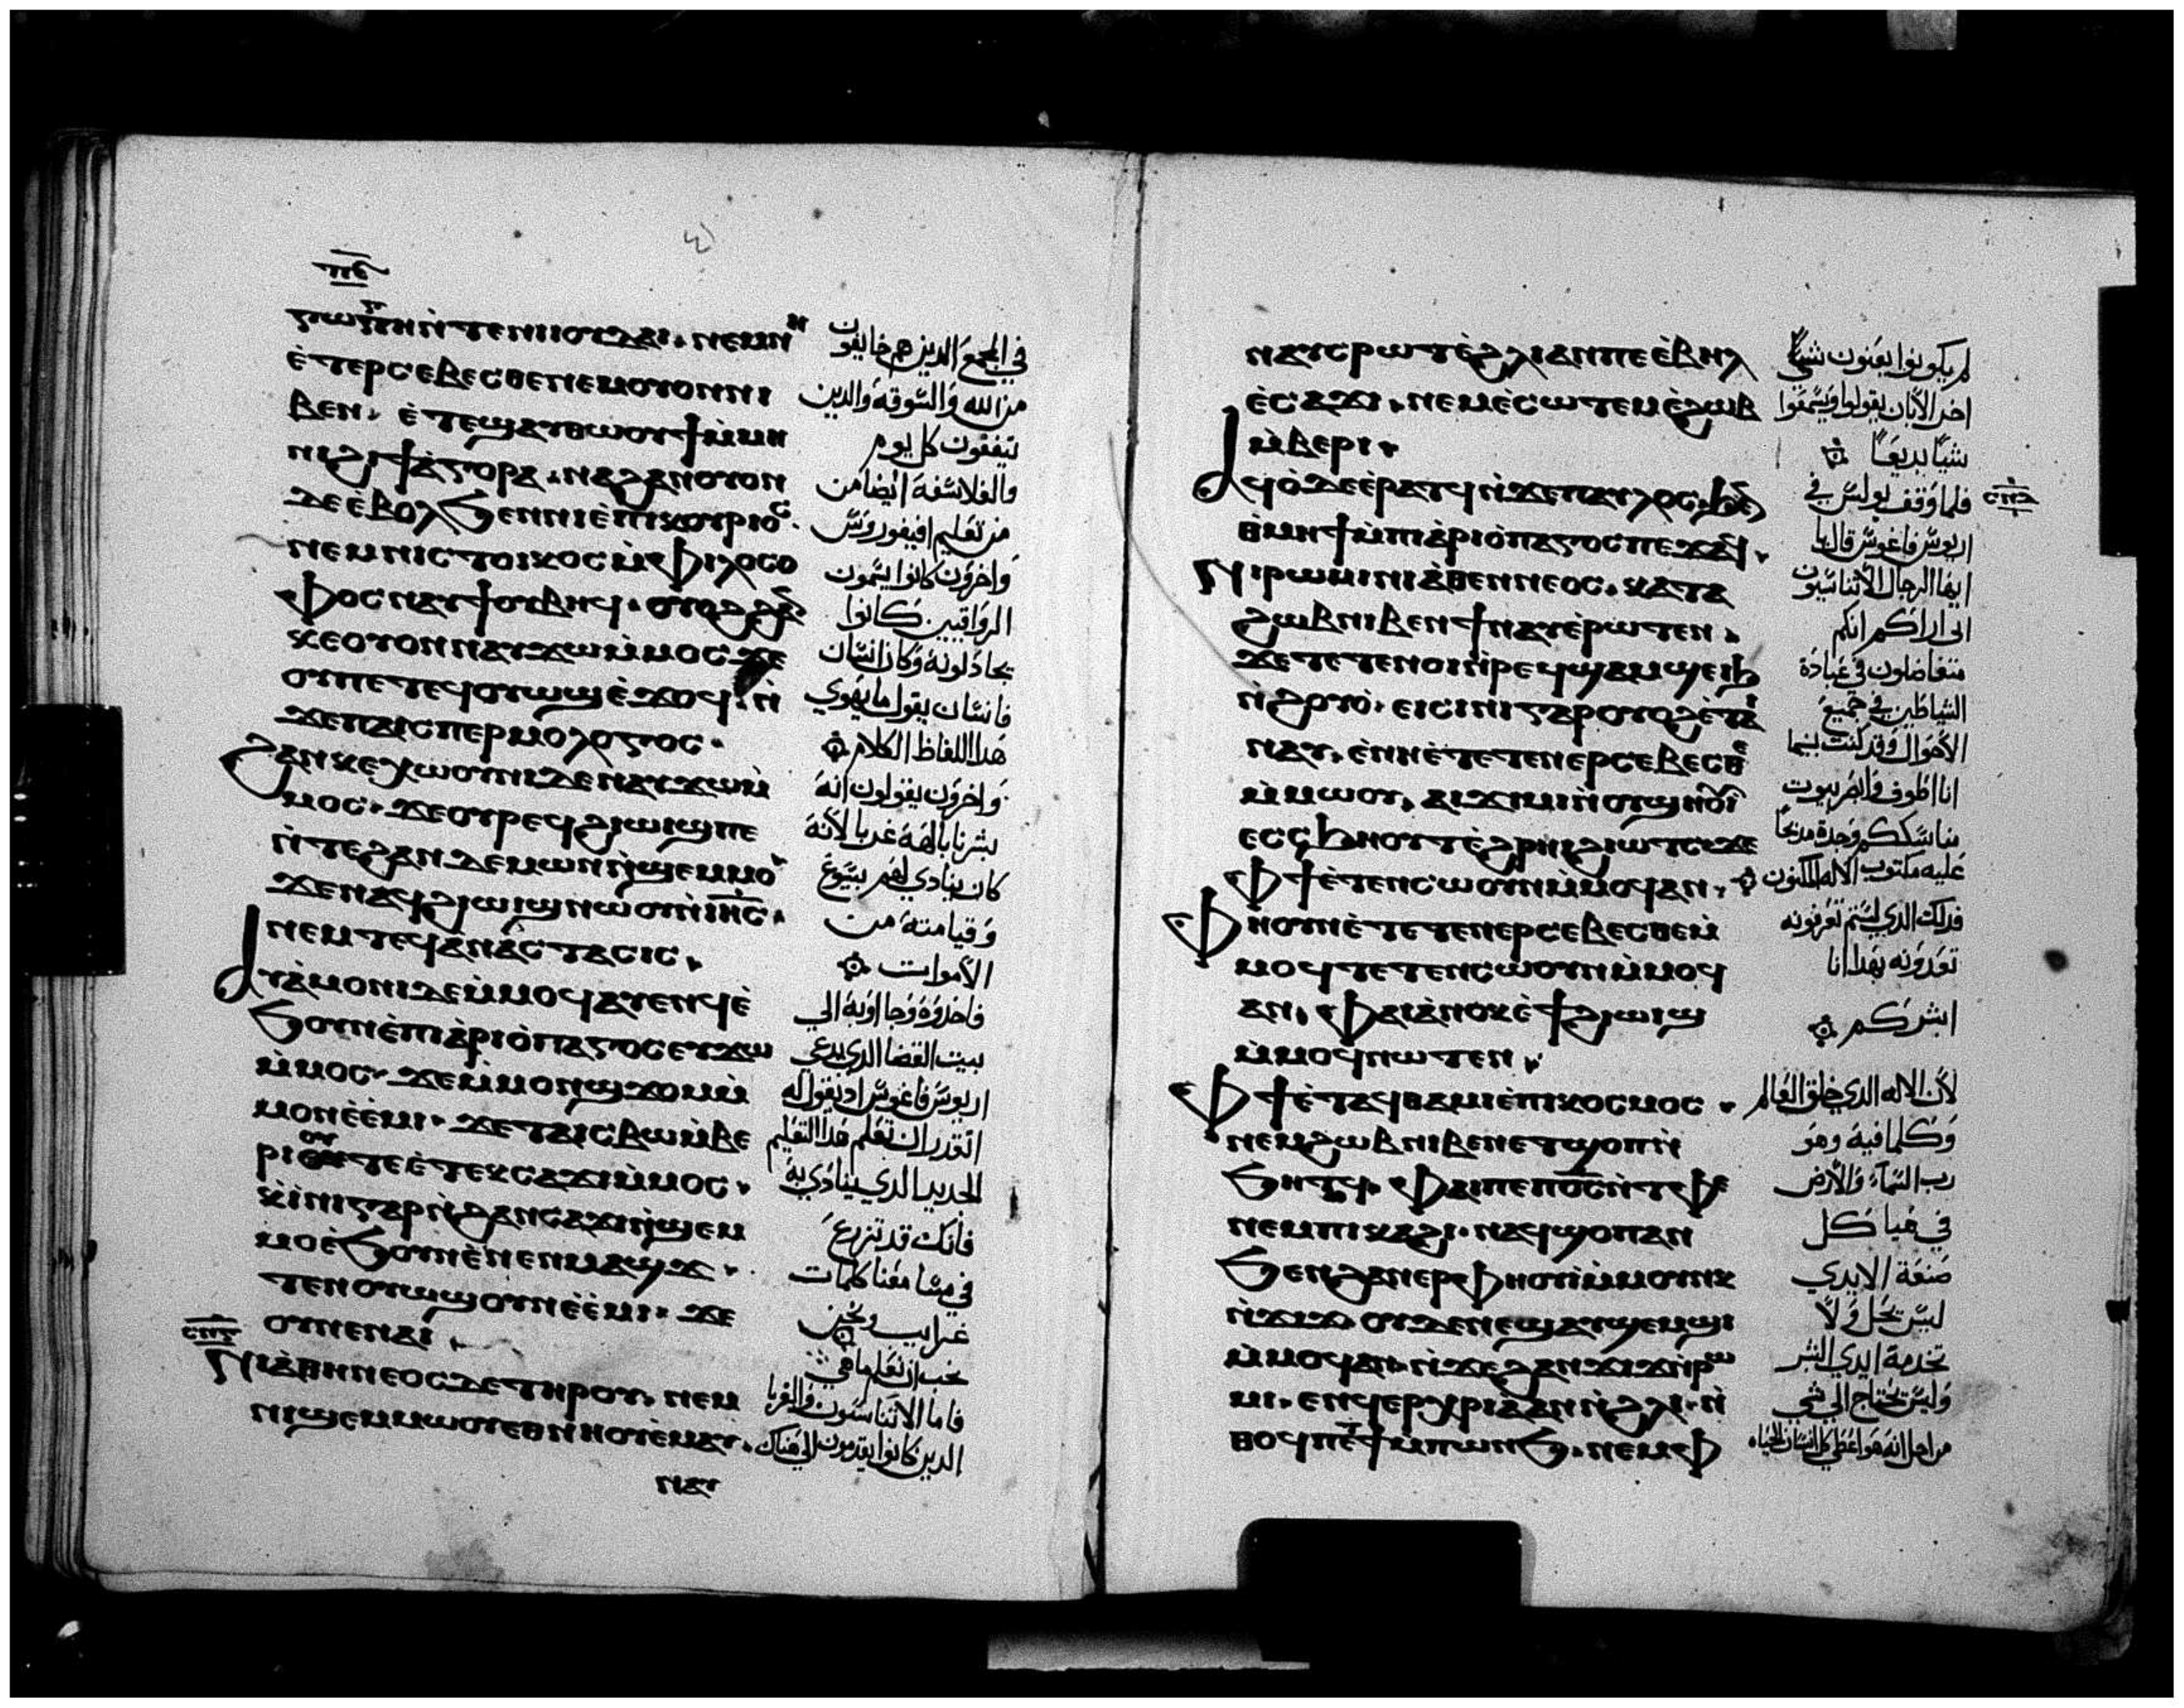 ⲡⲉ
ⲅⲱⲅⲏⲛ̀ⲧⲉⲛⲓⲓⲟⲩⲇⲁⲓ. ⲛⲉⲙⲛⲏ
ⲉ̀ⲧⲉⲣⲥⲉⲃⲉⲥⲑⲉⲛⲉⲙⲟⲩⲟⲛⲛⲓ
ⲃⲉⲛ. ⲉ̀ⲧⲉϣⲁⲩⲑⲱⲟⲩϯⲙ̀ⲙⲏ
ⲛⲓϩⲓϯⲁ̀ⲅⲟⲣⲁ. ⲛⲁϩⲁⲛⲟⲩⲟⲛ
ⲇⲉⲉ̀ⲃⲟⲗϧⲉⲛⲛⲓⲉ̀ⲡⲓⲕⲟⲩⲣⲓⲟⲥ.
ⲛⲉⲙⲛⲓⲥⲧⲟⲓⲕⲟⲥⲙ̀ⲫⲓⲗⲟⲥⲟ
ⲫⲟⲥⲛⲁⲩϯⲟⲩⲃⲏϥ. ⲟⲩⲟϩϩⲁⲛ
ⲕⲉⲟⲩⲟⲛⲛⲁⲩϫⲱⲙ̀ⲙⲟⲥϫⲉ
ⲟⲩⲡⲉⲧⲉϥⲟⲩⲱϣⲉ̀ϫⲟϥ. ⲛ̀
ϫⲉⲡⲁⲓⲥⲡⲉⲣⲙⲟⲗⲟⲅⲟⲥ.
ϩⲁⲛⲕⲉⲭⲱⲟⲩⲛⲓⲇⲉⲛⲁⲩϫⲱⲙ̀
ⲙⲟⲥ. ϫⲉⲟⲩⲣⲉϥϩⲓⲱⲓϣⲡⲉ
ⲛ̀ⲧⲉϩⲁⲛⲇⲉⲙⲱⲛⲛ̀ϣⲉⲙⲙⲟ
ϫⲉⲛⲁϥϩⲓⲱⲓϣⲛⲱⲟⲩⲛ̀ⲓⲏ̅ⲥ̅.
ⲛⲉⲙⲧⲉϥⲁ̀ⲛⲁⲥⲧⲁⲥⲓⲥ.
ⲁⲩⲁ̀ⲙⲟⲛⲓⲇⲉⲙ̀ⲙⲟϥⲁⲩⲉⲛϥⲉ̀
ϧⲟⲩⲛⲉ̀ⲡⲓⲁ̀ⲣⲓⲟ̀ⲡⲁⲅⲟⲥⲉⲩϫⲱ
ⲙ̀ⲙⲟⲥ. ϫⲉⲙ̀ⲙⲟⲛϣϫⲟⲙⲙ̀
ⲙⲟⲛⲉ̀ⲉ̀ⲙⲓ. ϫⲉⲧⲁⲓⲥⲃⲱⲙ̀ⲃⲉ
ⲣⲓⲟⲩⲧⲉⲉ̀ⲧⲉⲕⲥⲁϫⲓⲙ̀ⲙⲟⲥ.
ⲕⲓ̀ⲛⲓⲅⲁⲣⲛ̀ϩⲁⲛⲥⲁϫⲓⲛ̀ϣⲉⲙ
ⲙⲟⲉ̀ϧⲟⲩⲛⲉ̀ⲛⲉⲛⲙⲁϣϫ.
ⲧⲉⲛⲟⲩⲱϣⲟⲩⲛⲉ̀ⲉ̀ⲙⲓ. ϫⲉ
ⲟⲩⲛⲉⲛⲁⲓ.
ⲛⲓⲁ̀ⲑⲏⲛⲛⲉⲟⲥⲇⲉⲧⲏⲣⲟⲩ. ⲛⲉⲙ
ⲛⲓϣⲉⲙⲙⲱⲟⲩⲉⲑⲛⲏⲟⲩⲉ̀ⲙⲁⲩ.
ⲛⲁⲩ
في المجمع الدين هم خايفون
من الله والسوقه والدين
يتفقون كل يوم
والفلاسفه ايضا من
من تعليم افيفوروس
واخرون كانوا يسمون
الرواقيين كانوا
يجادلونه وكان انسان
فانسان يقول ما يهوي
هدا اللفاظ الكلام
واخرون يقولون انه
يشرنا بالهة غربا لانه
كان ينادي لهم بيسوع
وقيامته من
الاموات
فاخدوه وجا اوبه الي
بيت القضا الدي يدعي
اريوس فاغوس اد نقول له
انقدر ان نعلم هدا التعليم
الجديد الدي ينادي به
فانك قد تزرع
في مسامعنا كلمات
غرايب ونحن
نحب ان نعلم ما هي
فاما الاثناسيون والغربا
الدين كانوا يقدمون الي هناك
ⲛⲁⲩⲥⲣⲱϥⲧⲉ̀ϩⲗⲓⲁⲛⲡⲉⲉ̀ⲃⲏⲗ
ⲉ̀ⲥⲁϫⲓ. ⲛⲉⲙⲉ̀ⲥⲱⲧⲉⲙⲉ̀ϩⲱⲃ
ⲙ̀ⲃⲉⲣⲓ.
ⲁϥⲟ̀ϩⲓⲇⲉⲉ̀ⲣⲁⲧϥⲛ̀ϫⲉⲡⲁⲩⲗⲟⲥ. ϧⲉⲛ
ⲑ̀ⲙⲏϯⲙ̀ⲡⲓⲁ̀ⲣⲓⲟ̀ⲡⲁⲅⲟⲥⲡⲉϫⲁϥ.
ⲛⲓⲣⲱⲙⲓⲛⲓⲁ̀ⲑⲉⲛⲛⲉⲟⲥ. ⲕⲁⲧⲁ
ϩⲱⲃⲛⲓⲃⲉⲛϯⲛⲁⲩⲉ̀ⲣⲱⲧⲉⲛ.
ϫⲉⲧⲉⲧⲉⲛⲟⲓⲛ̀ⲣⲉϥϣⲁⲙϣⲉⲓϧ
ⲛ̀ϩⲟⲩⲟ̀. ⲉⲓⲥⲓⲛⲓⲅⲁⲣⲟⲩⲟϩⲉ̀ⲧⲁⲓ
ⲛⲁⲩ. ⲉ̀ⲛⲏⲉ̀ⲧⲉⲧⲉⲛⲉⲣⲥⲉⲃⲉⲥⲑⲉ
ⲙ̀ⲙⲱⲟⲩ. ⲁⲓϫⲓⲙⲓⲛ̀ⲟⲩϣⲏⲟⲩⲓ
ⲉⲥⲥϧⲏⲟⲩⲧⲉ̀ϩⲣⲏⲓϩⲓⲱⲧⲥϫⲉ
ⲫϯⲉ̀ⲧⲉⲛⲥⲱⲟⲩⲛⲙ̀ⲙⲟϥⲁⲛ.
ⲫⲏⲟⲩⲛⲉ̀ⲧⲉⲧⲉⲛⲉⲣⲥⲉⲃⲉⲥⲑⲉⲙ̀
ⲙⲟϥⲧⲉⲧⲉⲛⲥⲱⲟⲩⲛⲙ̀ⲙⲟϥ
ⲁⲛ. ⲫⲁⲓⲁ̀ⲛⲟⲕⲉ̀ϯϩⲓⲱⲓϣ
ⲙ̀ⲙⲟϥⲛⲱⲧⲉⲛ.
ⲫϯⲉ̀ⲧⲁϥⲑⲁⲙⲓⲉ̀ⲡⲓⲕⲟⲥⲙⲟⲥ.
ⲛⲉⲙϩⲱⲃⲛⲓⲃⲉⲛⲉⲧϣⲟⲡⲛ̀
ϧⲏⲧϥ. ⲫⲁⲓⲡⲉⲡⲟ̅ⲥ̅ⲛ̀ⲧⲫⲉ
ⲛⲉⲙⲡⲓⲕⲁϩⲓ. ⲛⲁϥϣⲟⲡⲁⲛ
ϧⲉⲛϩⲁⲛⲉⲣⲫⲏⲟⲩⲓ̀ⲙ̀ⲙⲟⲩⲛⲕ
ⲛ̀ϫⲓϫ ⲟⲩⲇⲉⲛⲉϣⲁⲩϣⲉⲙϣⲓ
ⲙ̀ⲙⲟϥⲁⲛ. ⲛ̀ϫⲉϩⲁⲛϫⲓϫⲛ̀ⲣⲱ
ⲙⲓ. ⲉⲛϥⲉⲣⲭⲣⲓⲁⲁⲛⲛ̀ϩⲗⲓ. ⲛ̀
ⲑⲟϥⲡⲉⲧϯⲙ̀ⲡⲱⲛϧ. ⲛⲉⲙⲫ
لم يكونوا يعنون شيًا
اخر الا بان يقولوا ويسمعوا
شيًا بديعًا
فلما وقف بولس في
اريوس فاغوس قال لها
ايها الرجال الاثناسيون
اني اراكم انكم
متفاضلون في عبادة
الشياطين في جميع
الاحوال وقد كنت بينما
انا اطوف
عليه مكتوب الاله المكنون
فدلك الدي لستم تعرفونه
تعبدونه بهدا انا
ابشركم
لان الاله الدي خلق العالم
وكلما فيه وهو
رب السماء والارض
في هياكل
صنعة الايدي
ليس يحل ولا
تخدمة ايدي البشر
وليس يحتاج الي شي
من اجل انه هو اعطي كل انسان الحياه